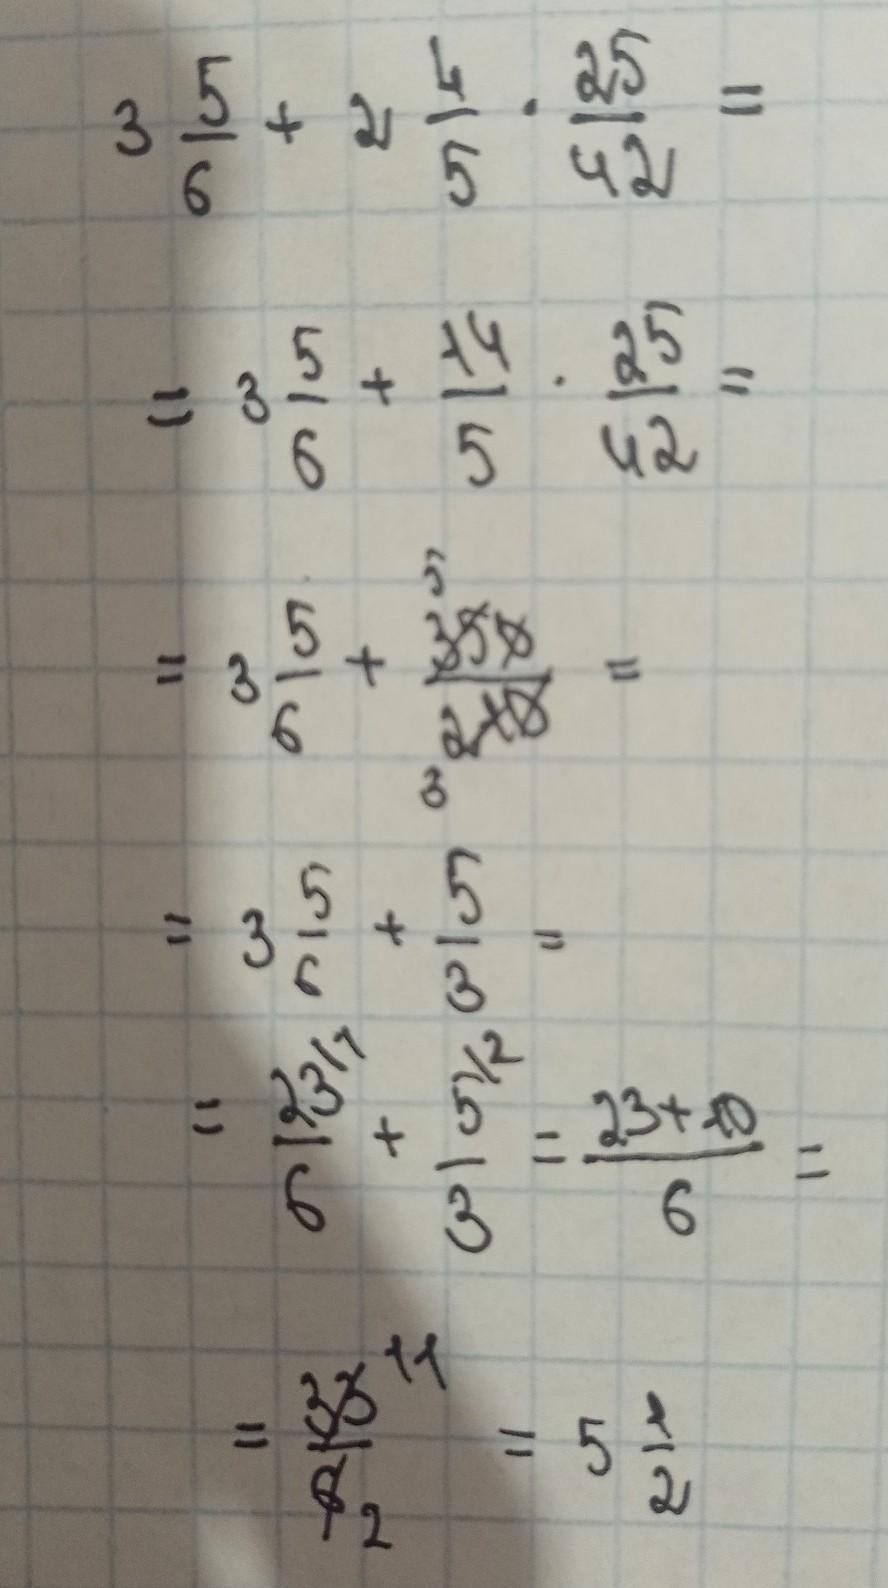 3 5/6 + 2 4/5 · 25/42 =
= 3 5/6 + 14/5 · 25/42 =
= 3 5/6 + 350/210 = 5 3
= 3 5/6 + 5/3 =
= 23/6 \1 + 5/3 \2 = (23+10)/6 =
= 33/6 11 2 = 5 1/2